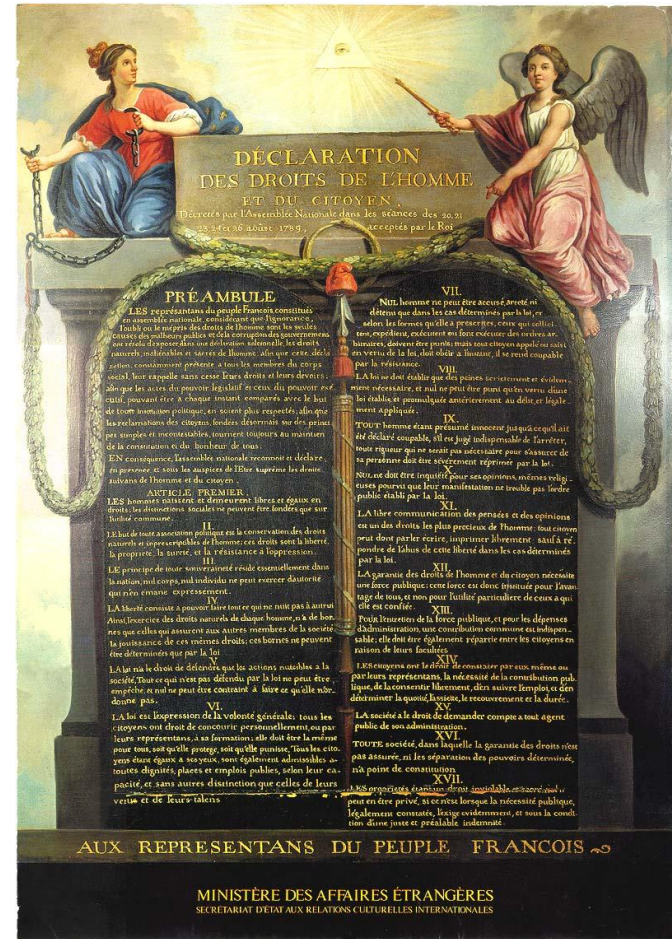 DÉCLARATION
DES DROITS DE L'HOMME
ET DU CITOYEN,
Décretés par l'Assemblée Nationale dans les séances des 20, 21
23, 24 et 26 août 1789, acceptés par le Roi
PRÉAMBULE
LES représentans du peuple Francois constitués
en assemblée nationale, considérant que l'ignorance,
l'oubli ou le mépris des droits de l'homme sont les seules
causes des malheurs publics et de la corruption des gouvernemens
ont résolu d'exposer dans une déclaration solemnelle, les droits
naturels, inaliénables et sacrés de l'homme; afin que cette décla
ration, constamment présente a tous les membres du corps
social, leur rappelle sans cesse leurs droits et leurs devoirs;
afin que les actes du pouvoir législatif et ceux du pouvoir exé
cutif, pouvant être a chaque instant comparés avec le but
de toute institution politique, en soient plus respectés; afin que
les reclamations des citoyens, fondées désormais sur des princi
pes simples et incontestables, tournent toujours au maintien
de la constitution et du bonheur de tous.
EN conséquence, l'assemblée nationale reconnoit et déclare,
en presence et sous les auspices de l'Etre suprême les droits
suivans de l'homme et du citoyen.
ARTICLE PREMIER.
LES hommes naissent et demeurent libres et égaux en
droits; les distinctions sociales ne peuvent être fondées que sur
l'utilité commune.
II.
LE but de toute association politique est la conservation des droits
naturels et imprescriptibles de l'homme; ces droits sont la liberté,
la propriété, la sureté, et la résistance à l'oppression.
III.
LE principe de toute souveraineté réside essentiellement dans
la nation, nul corps, nul individu ne peut exercer d'autorité
qui n'en émane expressement.
IV.
LA liberté consiste a pouvoir faire tout ce qui ne nuit pas à autrui
Ainsi, l'exercice des droits naturels de chaque homme, n'a de bor
nes que celles qui assurent aux autres membres de la société
la jouissance de ces mêmes droits; ces bornes ne peuvent
être déterminées que par la loi
V.
LA loi n'a le droit de défendre que les actions nuisibles a la
société. Tout ce qui n'est pas défendu par la loi ne peut être
empêche, et nul ne peut être contraint à faire ce qu'elle n'or
donne pas.
VI.
LA loi est l'expression de la volonté générale; tous les
citoyens ont droit de concourir personnellement, ou par
leurs représentans, à sa formation; elle doit être la même
pour tous, soit qu'elle protege, soit qu'elle punisse, Tous les cito
yens étant égaux a ses yeux, sont également admissibles a
toutes dignités, places et emplois publics, selon leur ca
pacité, et sans autres distinction que celles de leurs
vertus et de leurs talens
VII.
NUL homme ne peut être accusé, arreté ni
détenu que dans les cas déterminés par la loi, et
selon les formes qu'elle a prescrites, ceux qui sollici
tent, expédient, exécutent ou font exécuter des ordres ar
bitraires, doivent être punis; mais tout citoyen appelé ou saisi
en vertu de la loi, doit obéir a l'instant, il se rend coupable
par la résistance.
VIII.
LA loi ne doit établir que des peines strictement et évidem
ment nécessaire, et nul ne peut être puni qu'en vertu d'une
loi établie et promulguée antérierement au délit, et légale
ment appliquée.
IX.
TOUT homme étant présumé innocent jusqu'a ce qu'il ait
été déclaré coupable, s'il est jugé indispensable de l'arrêter,
toute rigueur qui ne serait pas nécessaire pour s'assurer de
sa personne doit être sévèrement réprimée par la loi.
X.
NUL ne doit être inquiété pour ses opinions, mêmes religi
euses pourvu que leur manifestation ne trouble pas l'ordre
public établi par la loi.
XI.
LA libre communication des pensées et des opinions
est un des droits les plus precieux de l'homme; tout citoyen
peut dont parler écrire, imprimer librement: sauf à ré
pondre de l'abus de cette liberté dans les cas déterminés
par la loi.
XII.
LA garantie des droits de l'homme et du citoyen nécessite
une force publique; cette force est donc instituée pour l'avan
tage de tous, et non pour l'utilité particuliere de ceux a qui
elle est confiée.
XIII.
POUR l'entretien de la force publique, et pour les dépenses
d'administration, une contribution commune est indispen-
sable; elle doit être également répartie entre les citoyens en
raison de leurs facultées
XIV.
LES citoyens ont le droit de constater par eux même ou
par leurs représentans, la nécessité de la contribution pub
lique, de la consentir librement, d'en suivre l'emploi, et d'en
déterminer la quotité, l'assiette, le recouvrement et la durée.
XV.
LA société a le droit de demander compte a tout agent
public de son administration.
XVI.
TOUTE société, dans laquelle la garantie des droits n'est
pas assurée, ni les séparation des pouvoirs déterminée,
n'a point de constitution
XVII.
LES propriétés étant un droit inviolable et sacré nul ne
peut en être privé, si ce n'est lorsque la nécessité publique,
légalement constatée, l'exige evidemment, et sous la condi
tion d'une juste et préalable indemnité.
AUX REPRESENTANS DU PEUPLE FRANCOIS
MINISTÈRE DES AFFAIRES ÉTRANGÈRES
SECRÉTARIAT D'ÉTAT AUX RELATIONS CULTURELLES INTERNATIONALES